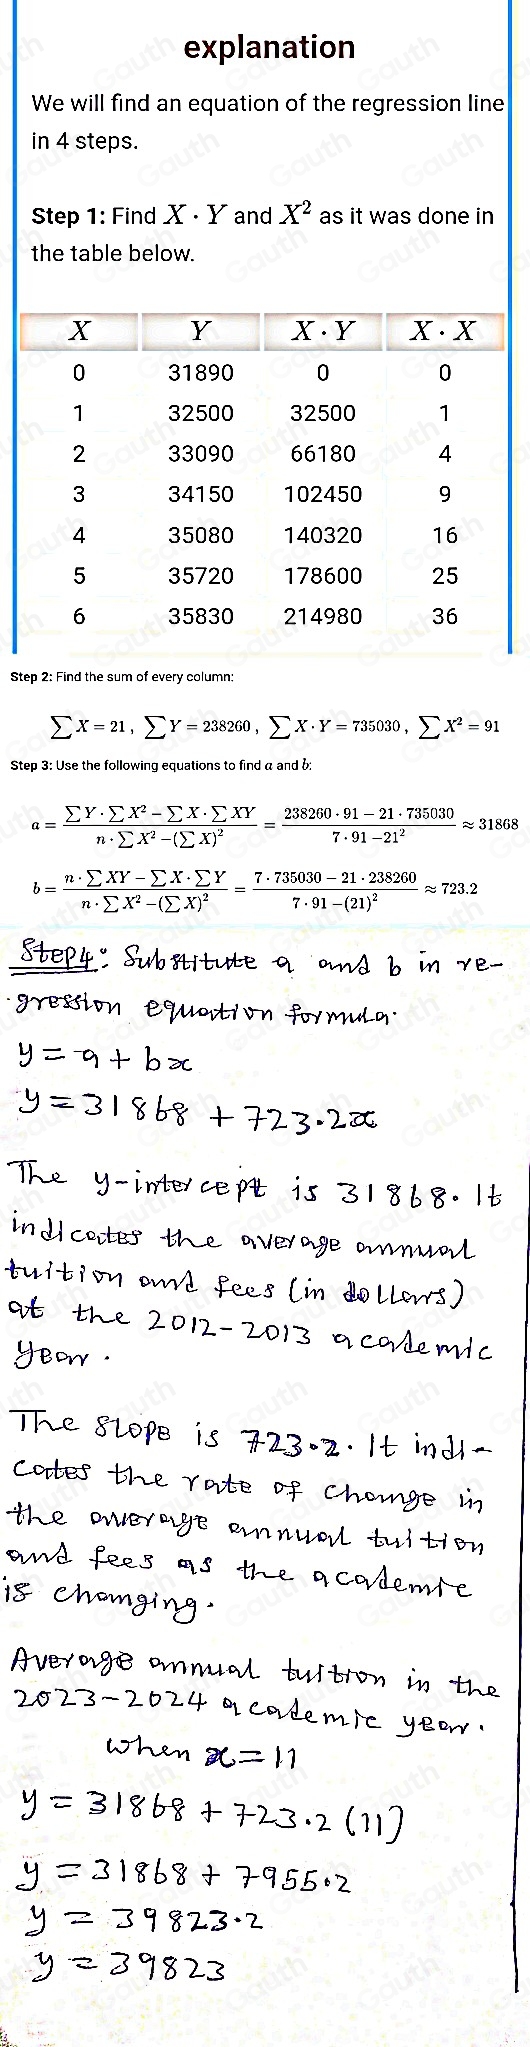 explanation
We will find an equation of the regression line
in 4 steps.
Step 1: Find X · Y and X² as it was done in
the table below.
X Y X · Y X · X
0 31890 0 0
1 32500 32500 1
2 33090 66180 4
3 34150 102450 9
4 35080 140320 16
5 35720 178600 25
6 35830 214980 36
Step 2: Find the sum of every column:
∑X = 21 , ∑Y = 238260 , ∑X · Y = 735030 , ∑X² = 91
Step 3: Use the following equations to find a and b:
a = (∑Y · ∑X² − ∑X · ∑XY) / (n · ∑X² − (∑X)²) = (238260 · 91 − 21 · 735030) / (7 · 91 − 21²) ≈ 31868
b = (n · ∑XY − ∑X · ∑Y) / (n · ∑X² − (∑X)²) = (7 · 735030 − 21 · 238260) / (7 · 91 − (21)²) ≈ 723.2
Step4: Substitute a and b in re-
gression equation formula.
y = a + bx
y = 31868 + 723.2x
The y-intercept is 31868. It
indicates the average annual
tuition and fees (in dollars)
at the 2012-2013 academic
year.
The slope is 723.2. It indi-
cates the rate of change in
the average annual tuition
and fees as the academic
is changing.
Average annual tuition in the
2023-2024 academic year.
when x = 11
y = 31868 + 723.2 (11)
y = 31868 + 7955.2
y = 39823.2
y = 39823